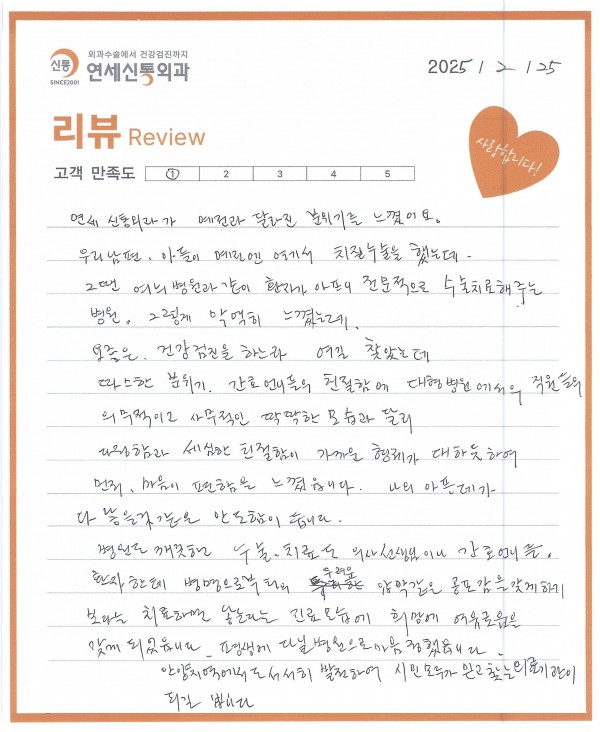 외과수술에서 건강검진까지
신통 연세신통외과
SINCE2001
2025 / 2 / 25
리뷰 Review
사랑합니다!
고객 만족도 1 2 3 4 5
연세 신통외과가 예전과 달라진 분위기를 느꼈어요.
우리남편, 아들이 예전엔 여기서 치질수술을 했는데.
그땐 여늬병원과같이 환자가 아프니 전문적으로 수술치료해주는
병원. 그렇게 막연히 느꼈는데.
요즘은, 건강검진을 하느라 여길 찾았는데
따스한 분위기. 간호언니들의 친절함에 대형병원에서의 직원들의
의무적이고 사무적인 딱딱한 모습과 달리
다정함과 세심한 친절함이 가까운 형제가 대하듯하여
먼저, 마음이 편함을 느꼈읍니다. 나의 아픈데가
다 나을것같은 안도함이 듭니다.
병원도 깨끗하고 수술.치료도 의사선생님이나 간호언니들.
환자한테 병명으로부터의 두려운 암막같은 공포감을 갖게하기
보다는 치료하면 낳는다는 진료모습에 희망에 여유로움을
갖게 되었읍니다. 평생에 다닐병원으로 마음 정했읍니다.
안양지역에서도 서서히 발전하여 시민모두가 믿고찾는 의료기관이
되길 빕니다